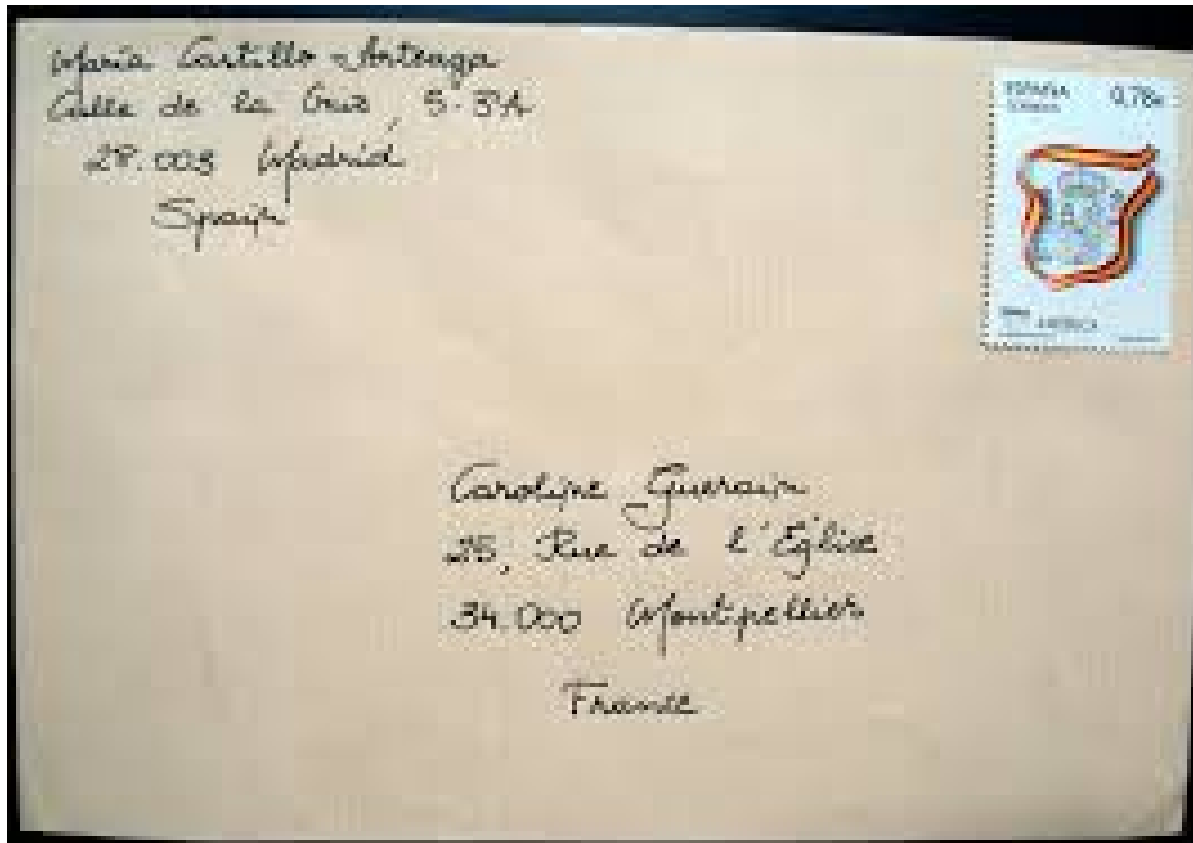 María Castillo-Arteaga
Calle de la Cruz, 5-3ºA
28.003 Madrid
Spain
ESPAÑA 0,78€
AMÉRICA
Caroline Guerain
25, Rue de l'Église
34.000 Montpellier
France